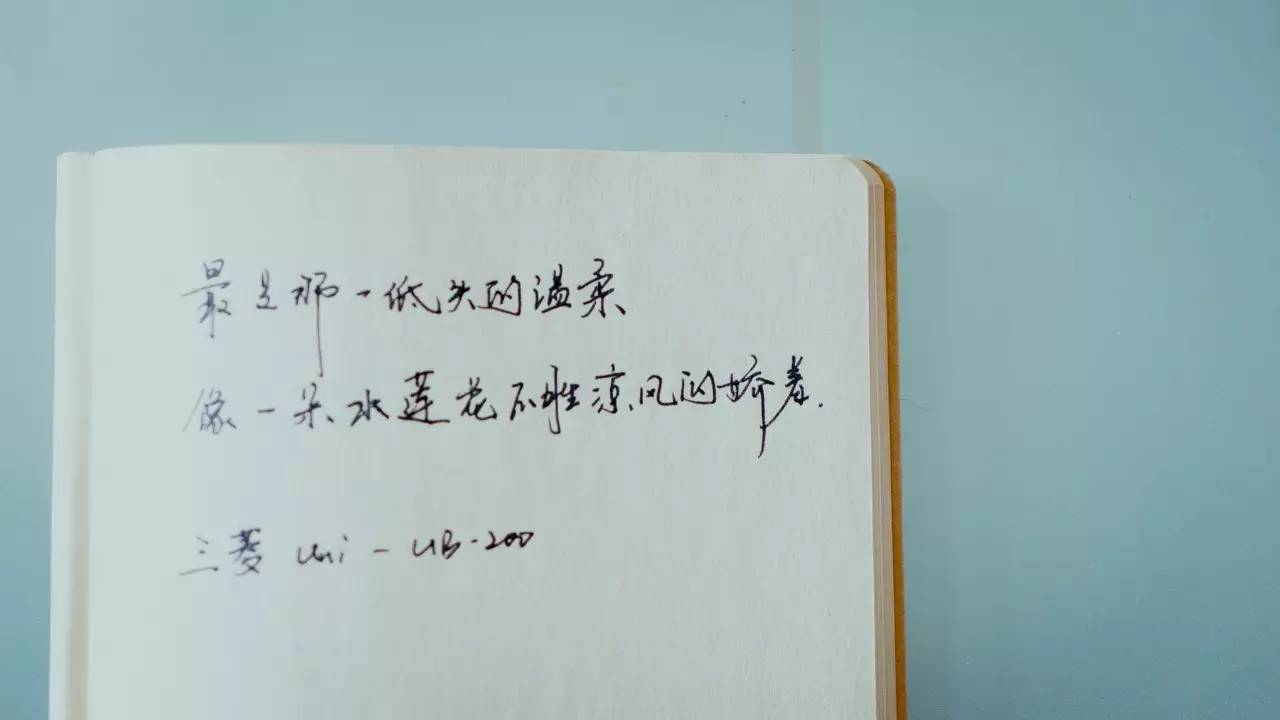 最是那一低头的温柔、
像一朵水莲花不胜凉风的娇羞.
三菱 uni - UB-200